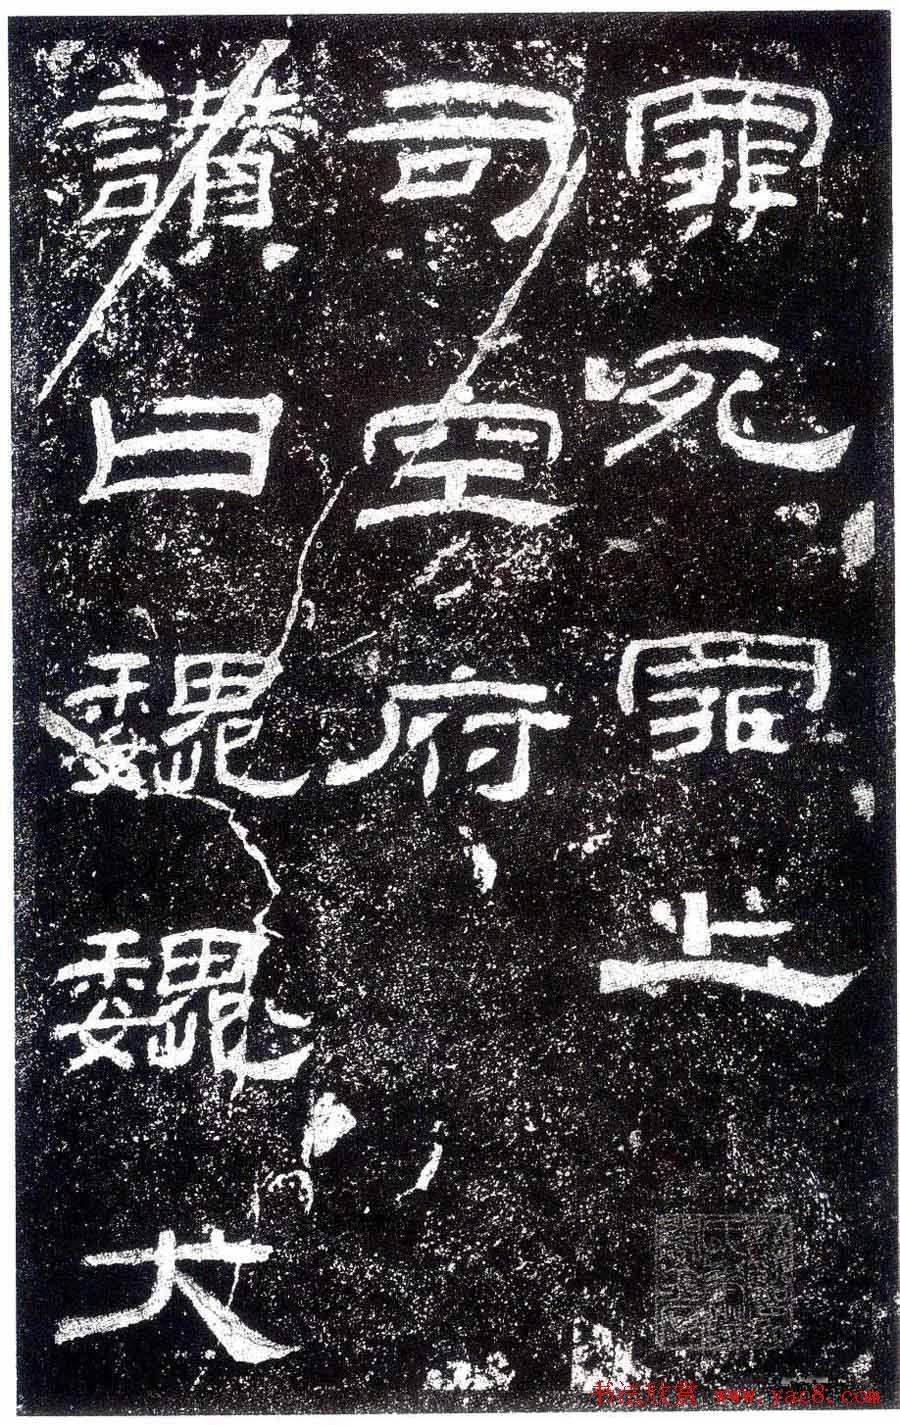 罪死罪上
司空府
讃曰巍巍大
书法欣赏 www.yac8.com